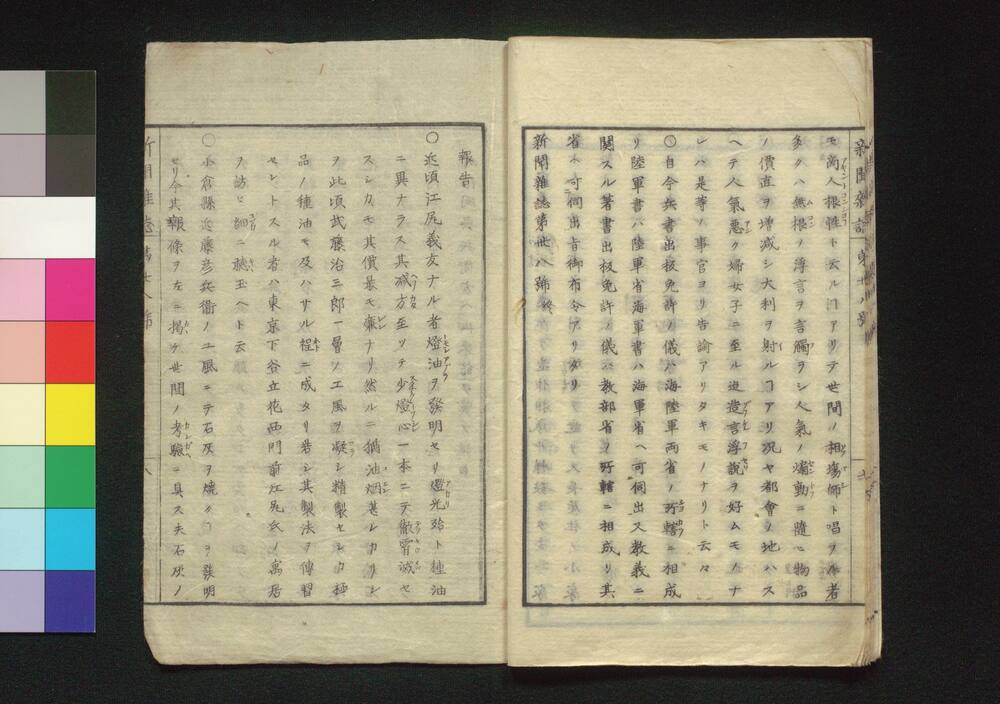 モ商人根性ト云ルヿアリテ世間ノ相塲師ト唱フル者
多クハ無根ノ浮言ヲ言觸ラシ人氣ノ煽動ニ隨ヒ物品
ノ價直ヲ増減シ大利ヲ射ルヿアリ況ヤ都會ノ地ハス
ヘテ人氣惡ク婦女子ニ至ル迠造言浮説ヲ好ムモノナ
レハ是等ノ事官ヨリ告諭アリタキモノナリト云々
○自今兵書出板免許ノ儀ハ海陸軍両省ノ所轄ニ相成
リ陸軍書ハ陸軍省海軍書ハ海軍省ヘ可伺出又教義ニ
関スル著書出板免許ノ儀ハ教部省ノ所轄ニ相成リ其
省ヘ可伺出旨御布令アリタリ
新聞雜誌第丗八號 終
報告
○近頃江尻義友ナル者燈油ヲ發明セリ燈光殆ト種油
ニ異ナラス其減方至ツテ少燈心一本ニテ徹宵減セ
スシカモ其價最モ廉ナリ然ルニ猶油烟甚シカリシ
ヲ此頃武藤治三郎一層ノ工風ヲ凝シ精製セシカ極
品ノ種油モ及ハサル程ニ成タリ若シ其製法ヲ傳習
セントスル者ハ東京下谷立花西門前江尻氏ノ寓居
ヲ訪ヒ細ニ聴玉ヘト云
○小倉縣近藤彦兵衛ノ工風ニテ石灰ヲ燒クヿヲ發明
セリ今其報條ヲ左ニ掲ケ世間ノ考驗ニ具ス夫石灰ノ